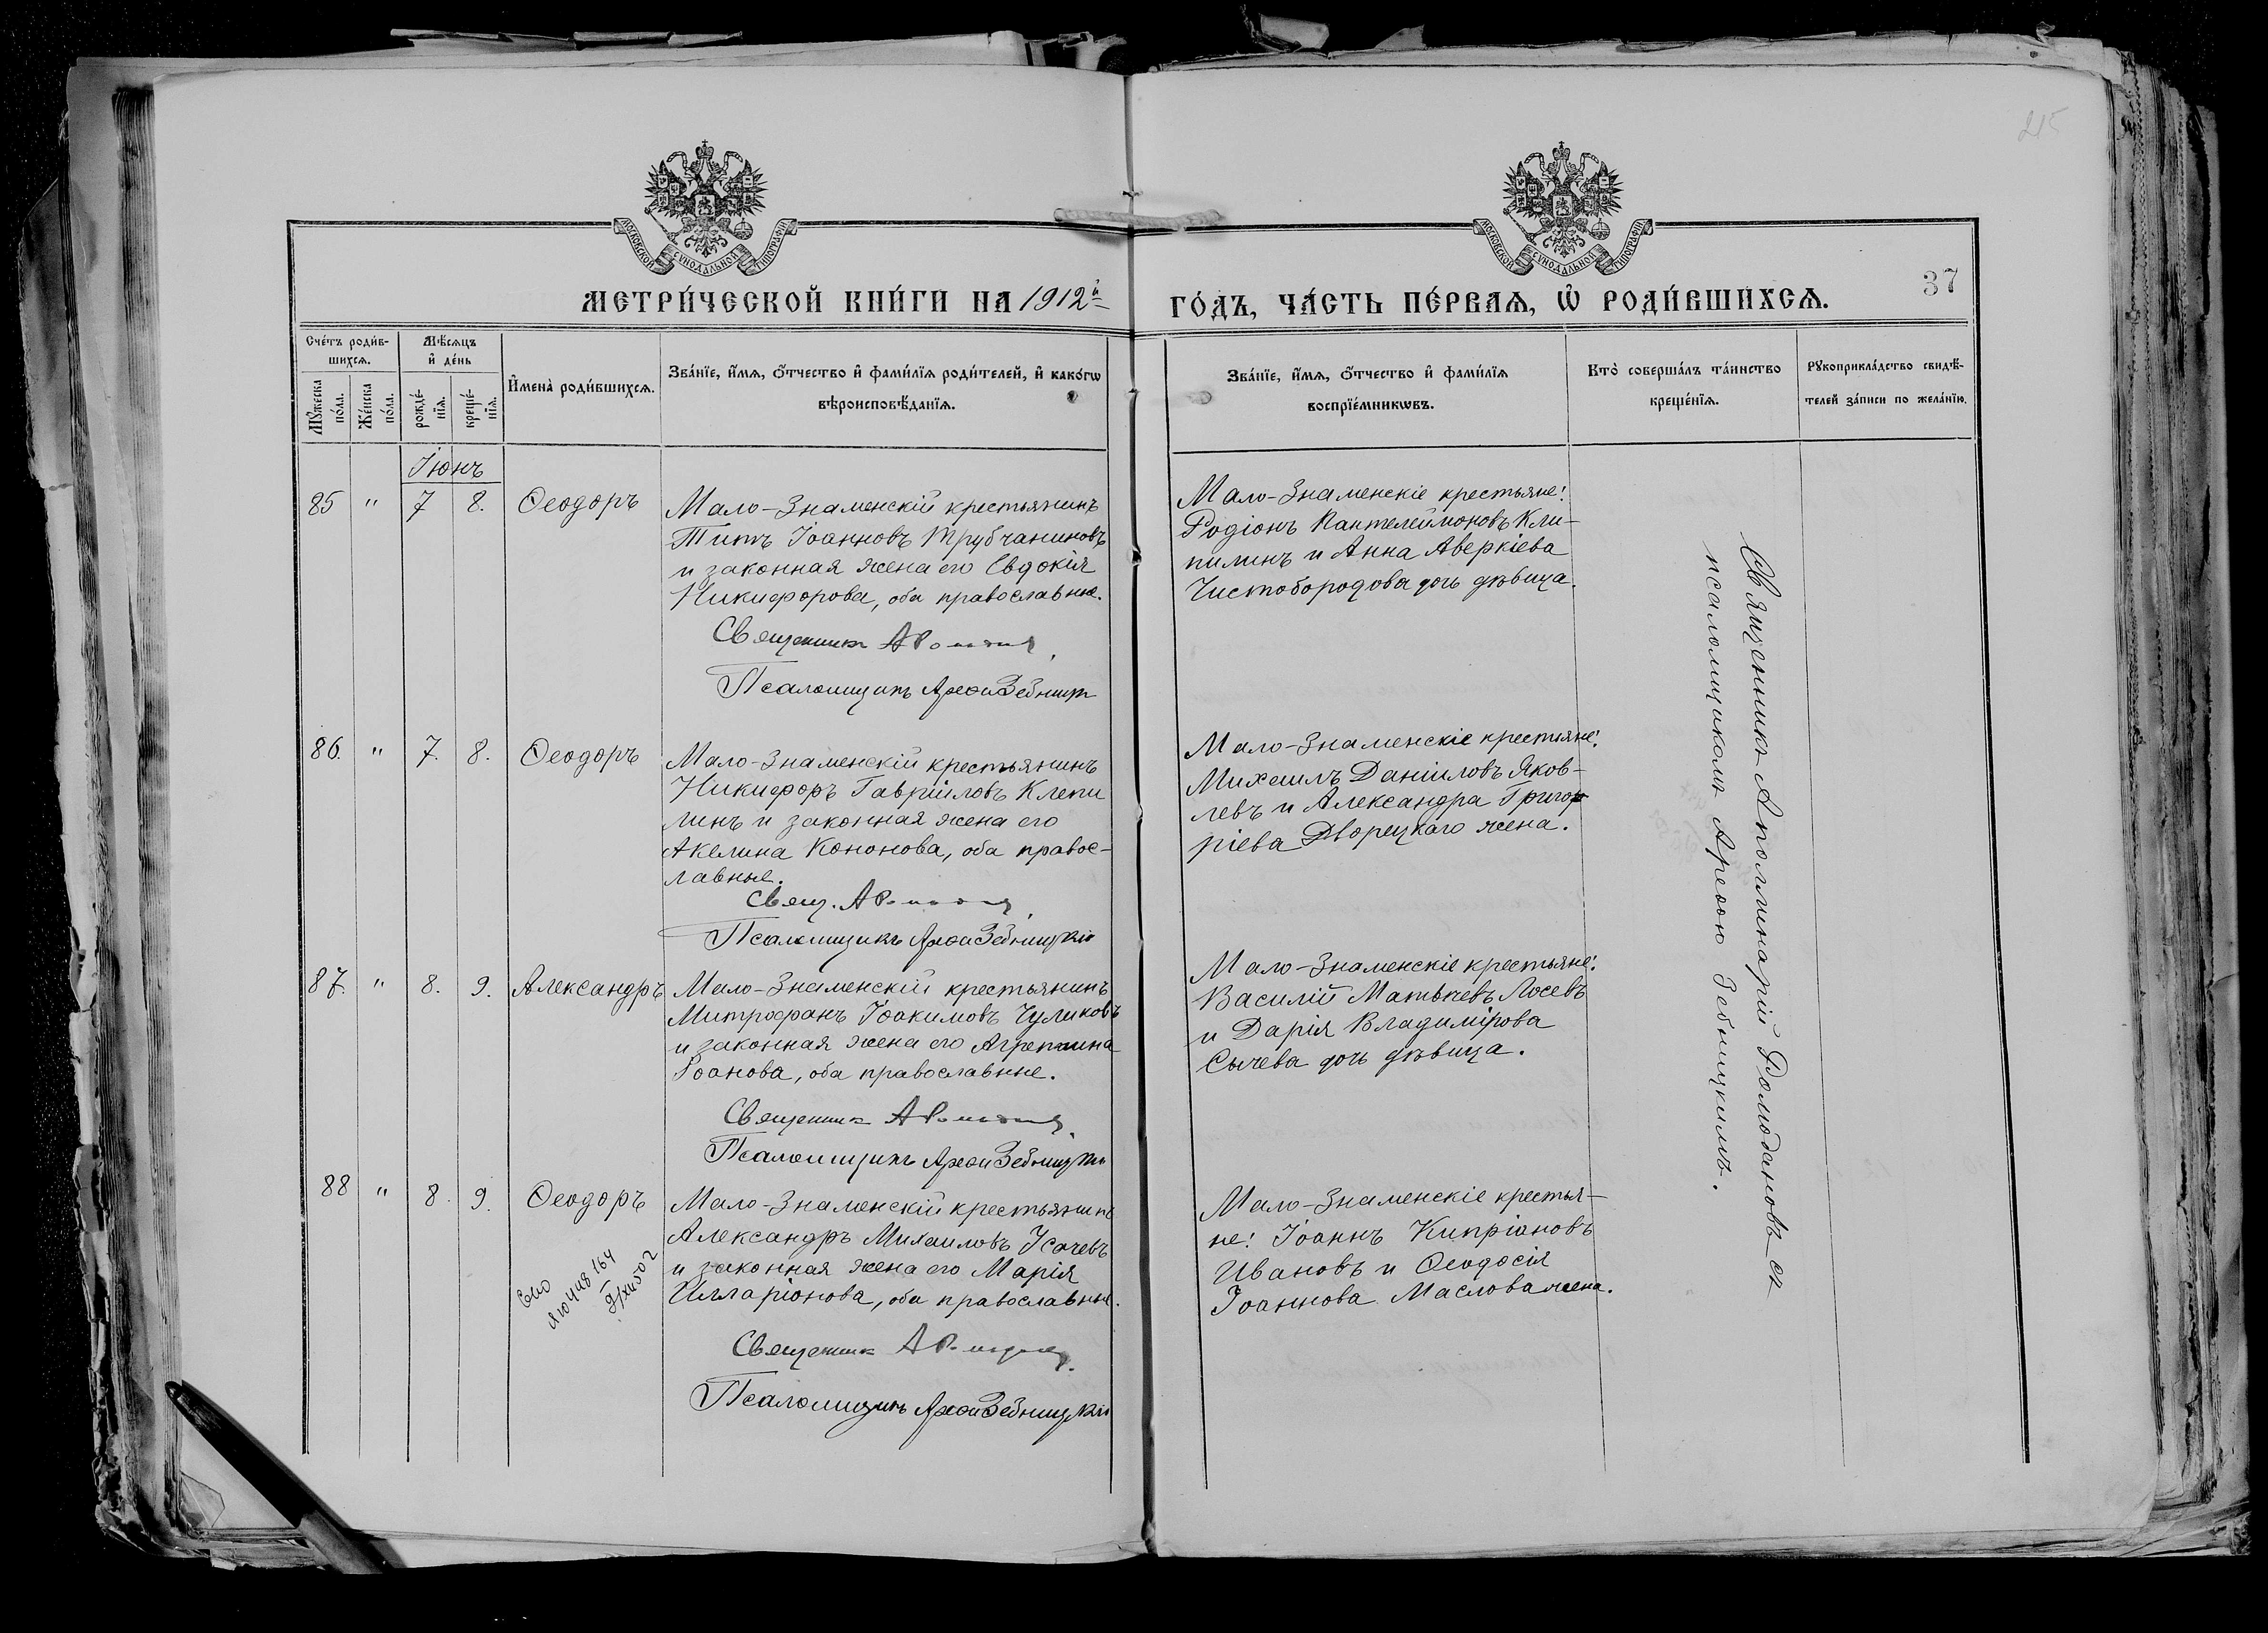 215
МОСКОВСКОЙ СѴНОДАЛЬНОЙ ТИПОГРАФІИ
МОСКОВСКОЙ СѴНОДАЛЬНОЙ ТИПОГРАФІИ
37
МЕТРИ́ЧЕСКОЙ КНИ́ГИ НА 1912й ГО́ДЪ, ЧА́СТЬ ПЕ́РВАѦ, Ѽ РОДИ́ВШИХСѦ.
Сче́тъ роди́в-
шихсѧ.
Мꙋ́жеска
по́ла.
Же́нска
по́ла.
Мѣ́сѧцъ
и҆ де́нь
рожде́-
нїѧ.
креще́-
нїѧ.
И҆мена̀ роди́вшихсѧ.
Зва́нїе, и҆́мѧ, ѻ҆́тчество и҆ фами́лїѧ роди́телей, и҆ како́гѡ
вѣроисповѣ́данїѧ.
Зва́нїе, и҆́мѧ, ѻ҆́тчество и҆ фами́лїѧ
воспрїе́мникѡвъ.
Кто̀ соверша́лъ та́инство
креще́нїѧ.
Рꙋкоприкла́дство свидѣ́-
телей за́писи по жела́нїю.
Іюнь
85 " 7 8. Ѳеодоръ
Мало-Знаменскій крестьянинъ
Титъ Іоанновъ Трубчаниновъ
и законная жена его Евдокія
Никифорова, оба православные.
Священникъ А Ромодановъ
Псаломщикъ Арефій Зебницкій
Мало-Знаменскіе крестьяне:
Родіонъ Пантелеймоновъ Кли-
пилинъ и Анна Аверкіева
Чистобородова дочь дѣвица.
86. " 7. 8. Ѳеодоръ
Мало-Знаменскій крестьянинъ
Никифоръ Гавріиловъ Клепи
линъ и законная жена его
Акелина Кононова, оба правос-
лавные.
Свящ. А Ромодановъ
Псаломщикъ Арефій Зебницкій
Мало-Знаменскіе крестьяне:
Михаилъ Даніиловъ Яков-
левъ и Александра Григор
ріева Дворецкаго жена.
87. " 8. 9. Александръ
Мало-Знаменскій крестьянинъ
Митрофанъ Іоакимовъ Чуликовъ
и законная жена его Агреппина
Іоанова, оба православные.
Священник А Ромодановъ
Псаломщикъ Арефій Зебницкій
Мало-Знаменскіе крестьяне:
Василій Матвѣевъ Лосевъ
и Дарія Владимірова
Сычева дочь дѣвица.
88 " 8. 9. Ѳеодоръ
Мало-Знаменскій крестьянинъ
Александръ Михаиловъ Усачевъ
и законная жена его Марія
Илларіонова, оба православные.
Священник А Ромодановъ
Псаломщикъ Арефій Зебницкій
Мало-Знаменскіе крестья-
не: Іоаннъ Кипріановъ
Ивановъ и Ѳеодосія
Іоаннова Маслова жена.
Священникъ Аполлинарій Ромодановъ съ
псаломщикомъ Арефою Зебницкимъ.